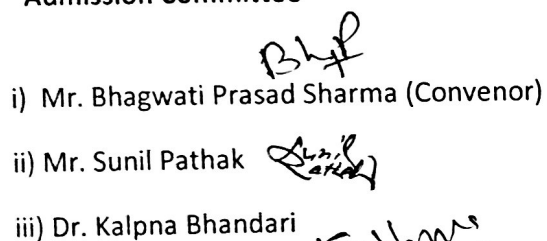 Admission Committee
i) Mr. Bhagwati Prasad Sharma (Convenor)
ii) Mr. Sunil Pathak Sunil Pathak
iii) Dr. Kalpna Bhandari